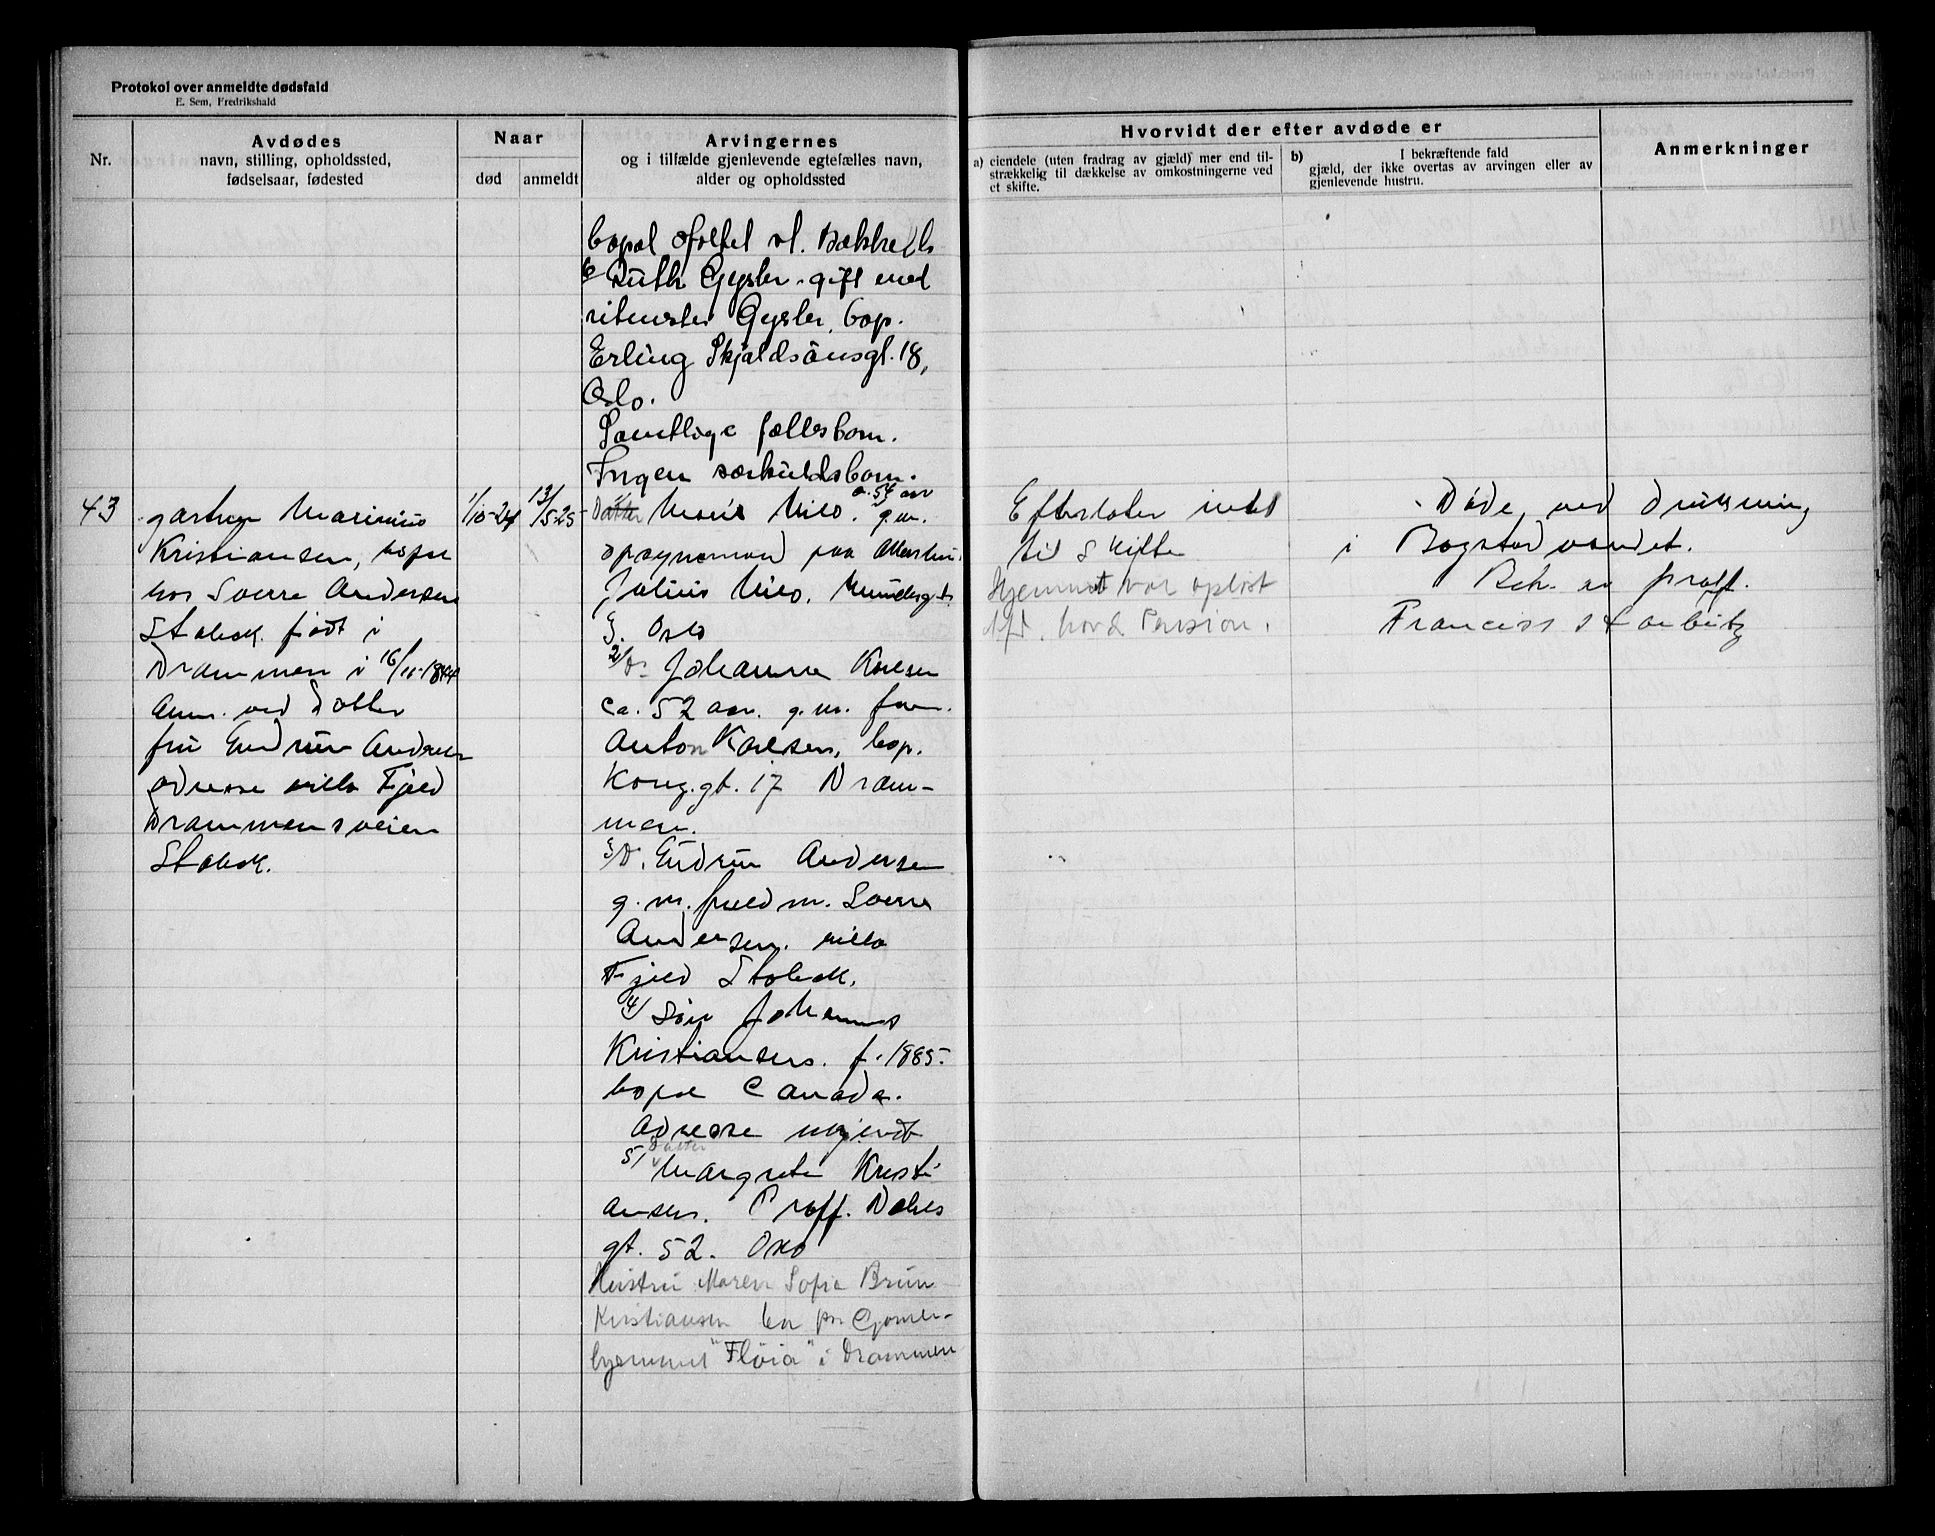 Protokol over anmeldte dødsfald
E. Sem, Fredrikshald
Nr.
Avdødes
navn, stilling, opholdssted,
fødselsaar, fødested
Naar
død
anmeldt
Arvingernes
og i tilfælde gjenlevende egtefælles navn,
alder og opholdssted
Hvorvidt der efter avdøde er
a) eiendele (uten fradrag av gjæld) mer end til-
strækkelig til dækkelse av omkostningerne ved
et skifte.
b) I bekræftende fald
gjæld, der ikke overtas av arvingen eller av
gjenlevende hustru.
Anmerkninger
bopæl
Ruth Gysler. gift med
Gysler, bop.
Erling Skjaldsönsgt. 18,
Oslo.
Samtlige fællesbarn.
Ingen særkuldsbarn.
43
gartner Marinius
Kristiansen, bopæl
hos Sverre Andersen
Stabek. født i
Drammen i 16/11-1844
Anm. ved Datter
fru Gudrun Andersen
adresse villa Fjeld
Drammensveien
Stabek.
1/10-24
13/5-25
1/ Datter Marie Milo. ca. 54 aar g.m.
opsynsmand paa
Julius Milo. Munkegt.
3. Oslo
2/ D. Johanne Karlsen
ca. 52 aar. g.m.
Anton Karlsen, bop.
Kong.gt. 17 Dram-
men.
3/ D. Gudrun Andersen
g.m. Sverre
Andersen. villa
Fjeld Stabek.
4/ Søn Johannes
Kristiansen. f. 1885.
bopæl Canada.
Adresse ukjendt
5/ Datter Margrete Kristi
ansen. Proff. Dahls
gt. 52. Oslo
Hustru Maren Sofie Brun
Kristiansen bor paa Gamle-
hjemmet "Fløia" i Drammen
Efterlater intet
til skifte
Hjemmet var opløst
Pension.
Døde ved drukning
i Bogstadvandet.
Beh. av proff.
Franciss Harbitz